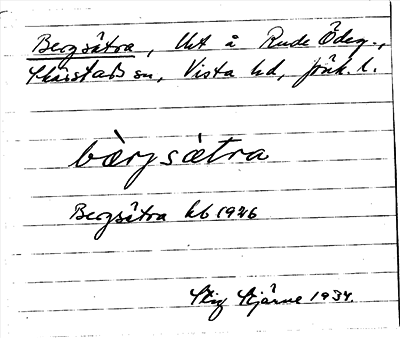 Bergsätra, lht å Rude Ödeg.,
Skärstads sn, Vista hd, Jönk. l.
bærgsætra
Bergsätra kb 1926
Stig Stjärne 1934.